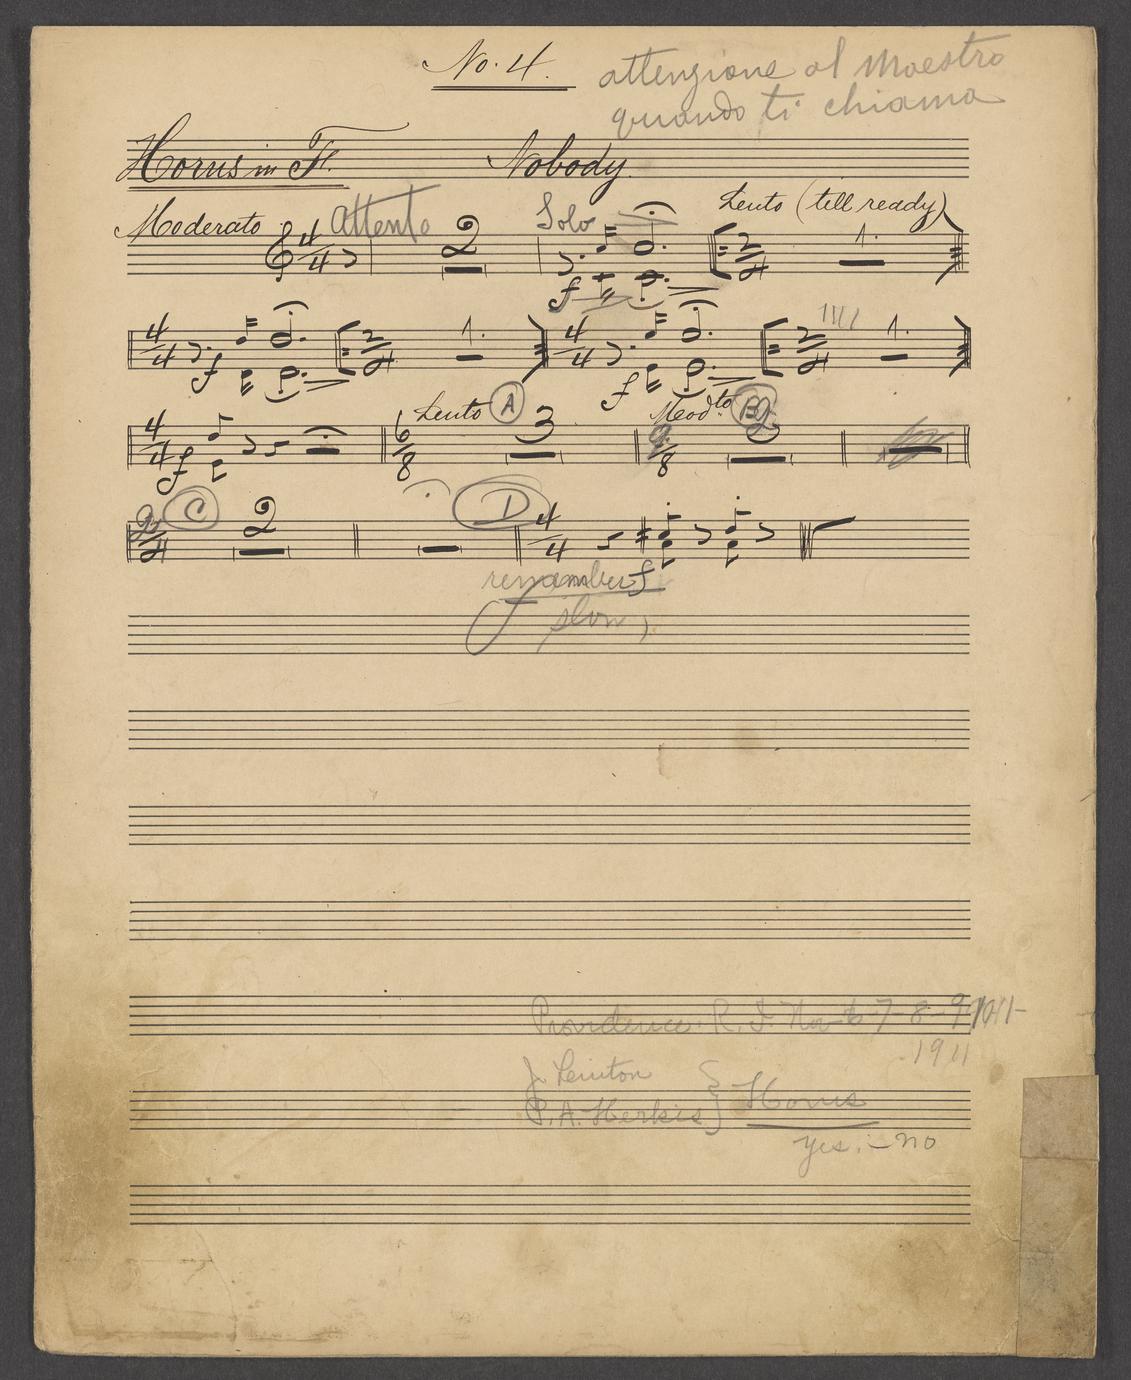 No. 4.
attenzione al Maestro
quando ti chiama
Horns in F. Nobody.
Moderato Attento 2 Solo Lento (till ready)
4/4 f 2/4 1.
4/4 f 2/4 1. 4/4 f 2/4 1.
Lento A 3 Mod.to B
4/4 f 6/8 8
C 2 D
2/4 4/4
remember f
slow
Providence. R. I. Nov 6-7-8-9-1911-
1911
J. Leinton
P. A. Herkis } Horns
yes. - no